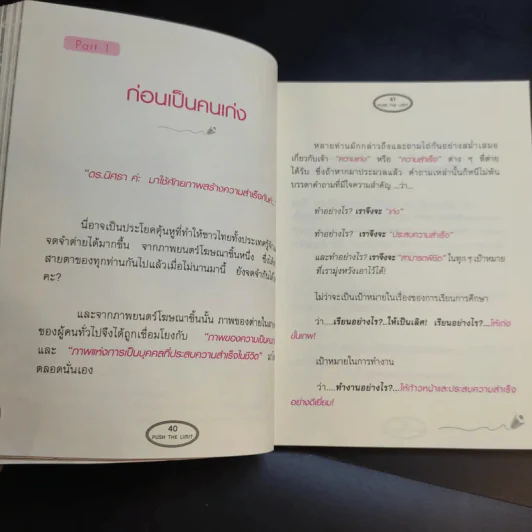 Part 1
ก่อนเป็นคนเก่ง
"ดร.นิศรา ค่ะ มาใช้ศักยภาพสร้างความสำเร็จกันค่ะ
นี่อาจเป็นประโยคคุ้นหูที่ทำให้ชาวไทยทั้งประเทศรู้จัก
จดจำต่ายได้มากขึ้น จากภาพยนตร์โฆษณาชิ้นหนึ่ง ซึ่งได้
สายตาของทุกท่านกันไปแล้วเมื่อไม่นานมานี้ ยังจดจำกันได้
คะ?
และจากภาพยนตร์โฆษณาชิ้นนั้น ภาพของต่ายใน
ของผู้คนทั่วไปจึงได้ถูกเชื่อมโยงกับ "ภาพของความเป็นคน
และ "ภาพแห่งการเป็นบุคคลที่ประสบความสำเร็จในชีวิต"
ตลอดนั่นเอง
40
PUSH THE LIMIT
41
PUSH THE LIMIT
หลายท่านมักกล่าวถึงและถามไถ่กันอย่างสม่ำเสมอ
เกี่ยวกับเจ้า "ความเก่ง" หรือ "ความสำเร็จ" ต่าง ๆ ที่ต่าย
ได้รับ ซึ่งถ้าหากมาประมวลแล้ว คำถามเหล่านั้นก็หนีไม่พ้น
บรรดาคำถามที่มีใจความสำคัญ ...ว่า...
ทำอย่างไร? เราจึงจะ "เก่ง"
ทำอย่างไร? เราจึงจะ "ประสบความสำเร็จ"
และทำอย่างไร? เราจึงจะ "สามารถพิชิต" ในทุก ๆ เป้าหมาย
ที่เรามุ่งหวังเอาไว้ได้!
ไม่ว่าจะเป็นเป้าหมายในเรื่องของการเรียนการศึกษา
ว่า....เรียนอย่างไร?...ให้เป็นเลิศ! เรียนอย่างไร?...ให้เก่ง
ขั้นเทพ!
เป้าหมายในการทำงาน
ว่า....ทำงานอย่างไร?...ให้ก้าวหน้าและประสบความสำเร็จ
อย่างดีเยี่ยม!